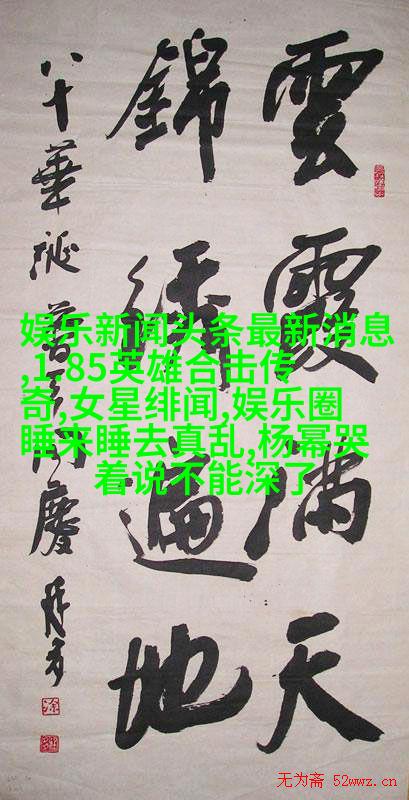 雲霞滿天
錦繡遍地
八十華诞普天同慶
娱乐新闻头条最新消息
,1.85英雄合击传
奇,女星绯闻,娱乐圈
睡来睡去真乱,杨幂哭
着说不能深了
无为斋 52wwz.cn